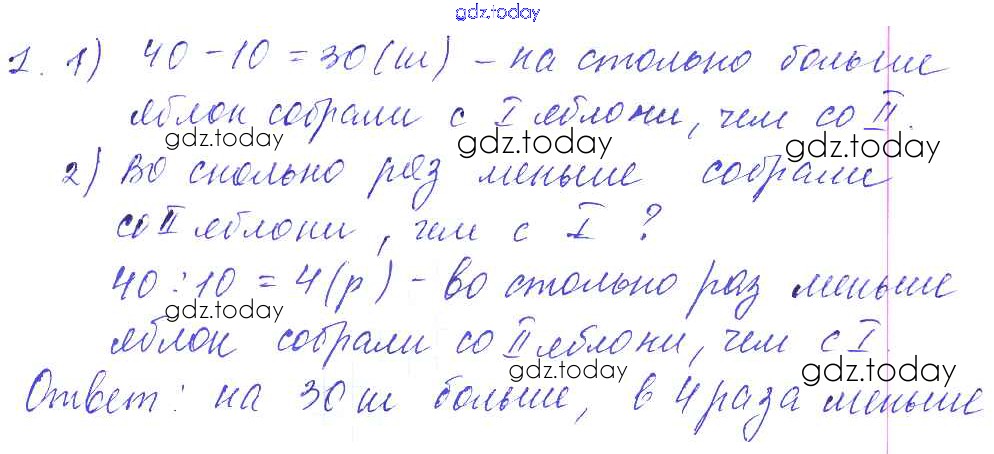 gdz.today
1. 1) 40 - 10 = 30 (ш) - на столько больше
яблок собрали с I яблони, чем со II.
gdz.today gdz.today gdz.today
2) Во сколько раз меньше собрали
со II яблони, чем с I ?
40 : 10 = 4 (р) - во столько раз меньше
gdz.today
яблок собрали со II яблони, чем с I.
gdz.today gdz.today
Ответ: на 30 ш больше, в 4 раза меньше